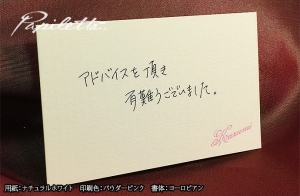 Papiletta.
アドバイスを頂き
有難うございました。
用紙：ナチュラルホワイト　印刷色：パウダーピンク　書体：ヨーロピアン